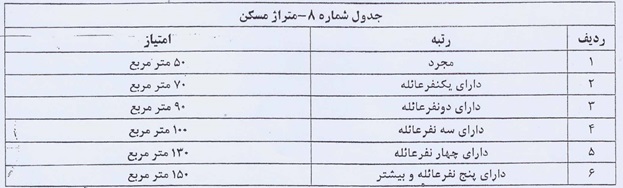 جدول شماره ۸-متراژ مسکن
ردیف رتبه امتیاز
۱ مجرد ۵۰ متر مربع
۲ دارای یکنفرعائله ۷۰ متر مربع
۳ دارای دونفرعائله ۹۰ متر مربع
۴ دارای سه نفرعائله ۱۰۰ متر مربع
۵ دارای چهار نفرعائله ۱۳۰ متر مربع
۶ دارای پنج نفرعائله و بیشتر ۱۵۰ متر مربع